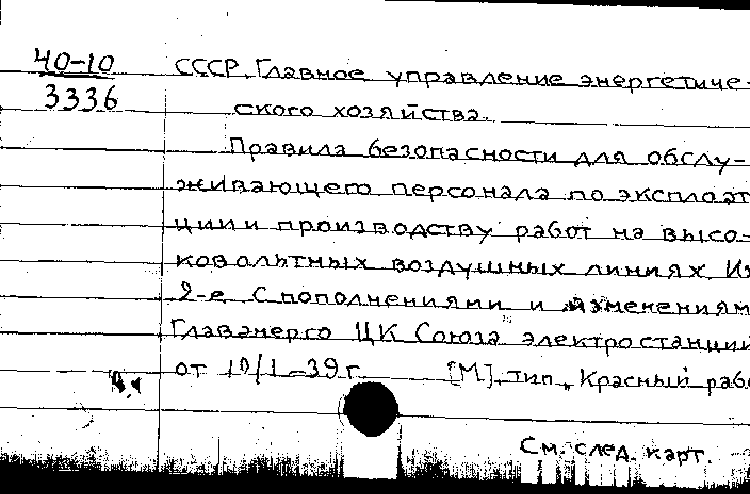 40-10
3336
СССР. Главное управление энергетиче-
ского хозяйства.
Правила безопасности для обслу-
живающего персонала по эксплоат
ции и производству работ на высо-
ковольтных воздушных линиях. Из
2-е. С пополнениями и изменениям
Главэнерго ЦК Союза электростанций
от 10/I-39 г. [М], тип. Красный рабо
См. след. карт.